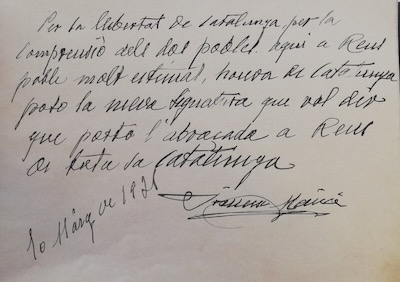 Per la llibertat de Catalunya per la
comprensió dels dos pobles. aqui a Reus
poble molt estimat, honra de Catalunya
poso la meva signatura que vol dir
que porto l'abraçada a Reus
de tota la Catalunya
Francesc Macià
10 Març de 1931